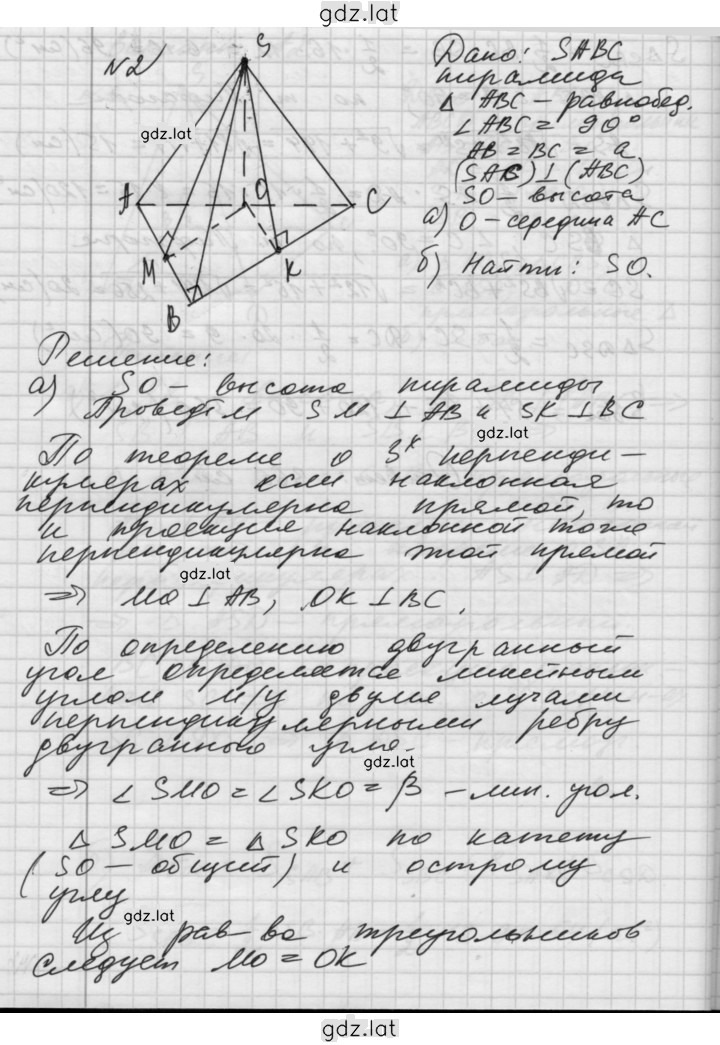 gdz.lat
N2
S
gdz.lat
A
O
C
M
K
B
Дано: SABC
пирамида
Δ ABC – равнобед.
∠ABC = 90°
AB = BC = a
(SAC)⊥(ABC)
SO – высота
а) O – середина AC
б) Найти: SO.
Решение:
а) SO – высота пирамиды
Проведём SM ⊥ AB и SK ⊥ BC
gdz.lat
По теореме о 3х перпенди–
кулярах если наклонная
перпендикулярна прямой, то
и проекция наклонной тоже
перпендикулярна этой прямой
gdz.lat
=> MO ⊥ AB, OK ⊥ BC,
По определению двугранный
угол определяется линейным
углом м/у двумя лучами
перпендикулярными ребру
двугранного угла.
gdz.lat
=> ∠ SMO = ∠ SKO = β – лин. угол.
Δ SMO = Δ SKO по катету
(SO – общий) и острому
углу
gdz.lat
Из рав–ва треугольников
следует MO = OK
gdz.lat